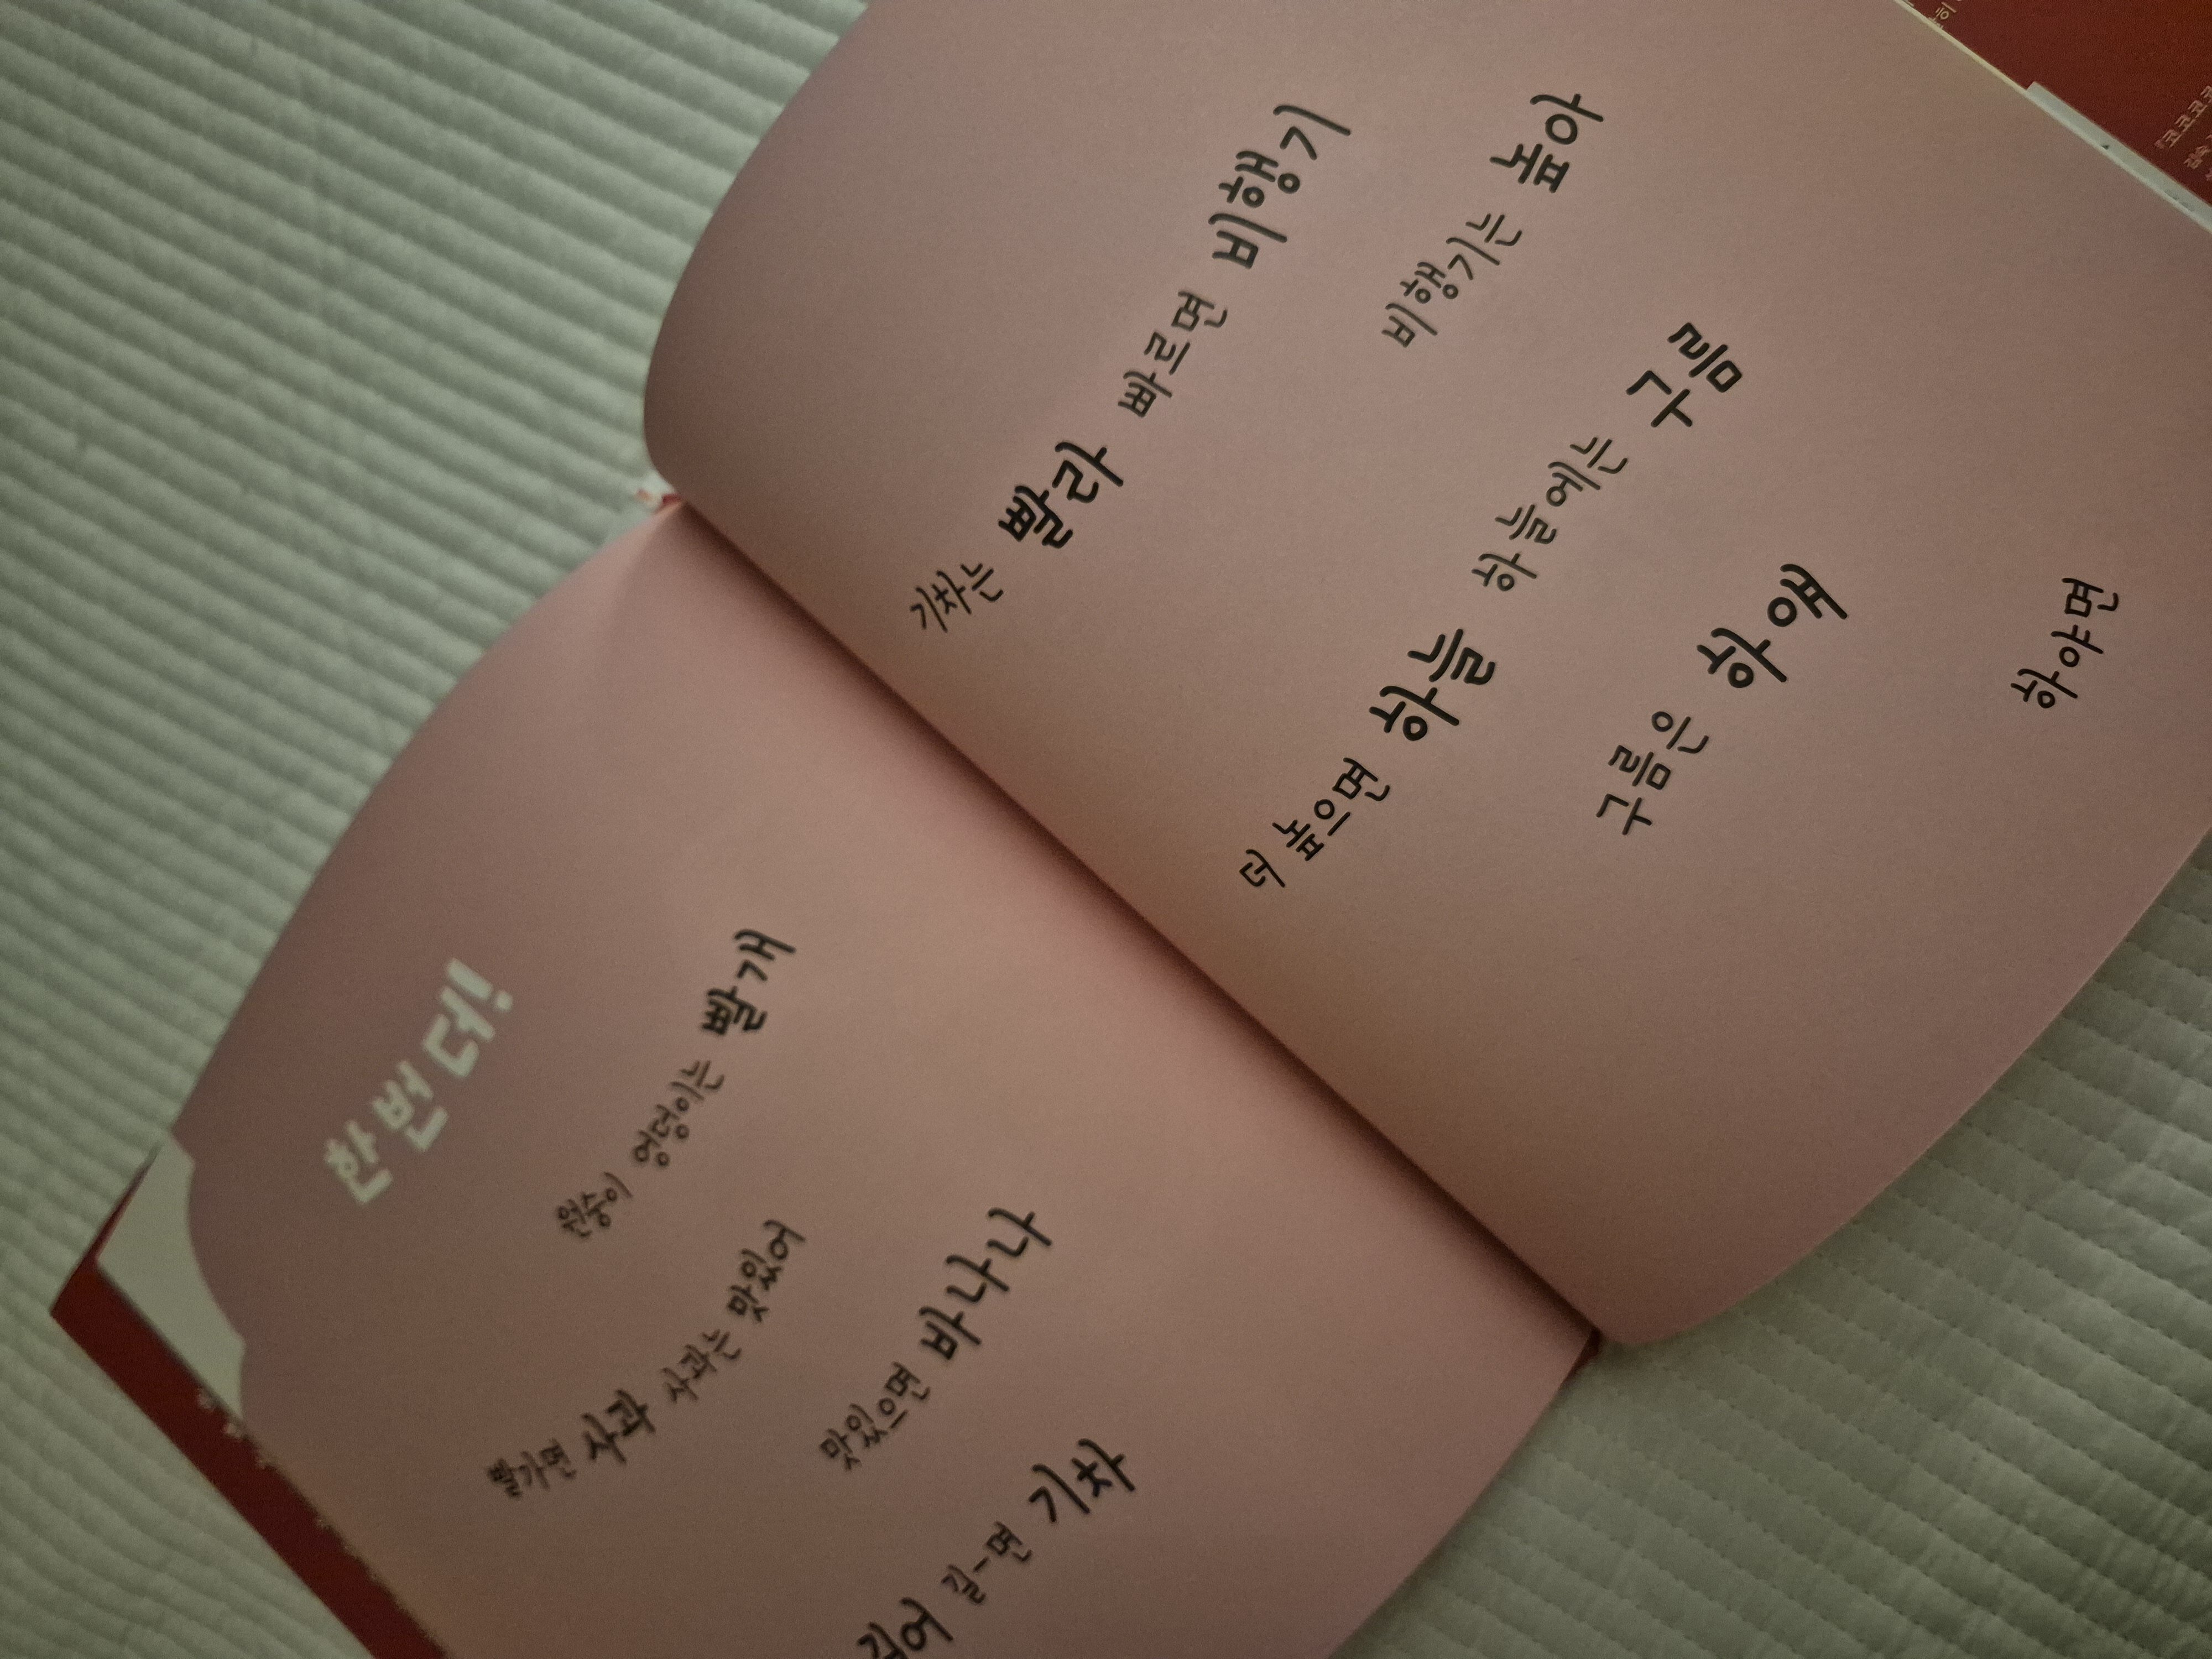 한 번 더!
원숭이 엉덩이는 빨개
빨가면 사과 사과는 맛있어
맛있으면 바나나
길어 길-면 기차
기차는 빨라 빠르면 비행기
비행기는 높아
더 높으면 하늘 하늘에는 구름
구름은 하얘
하야면